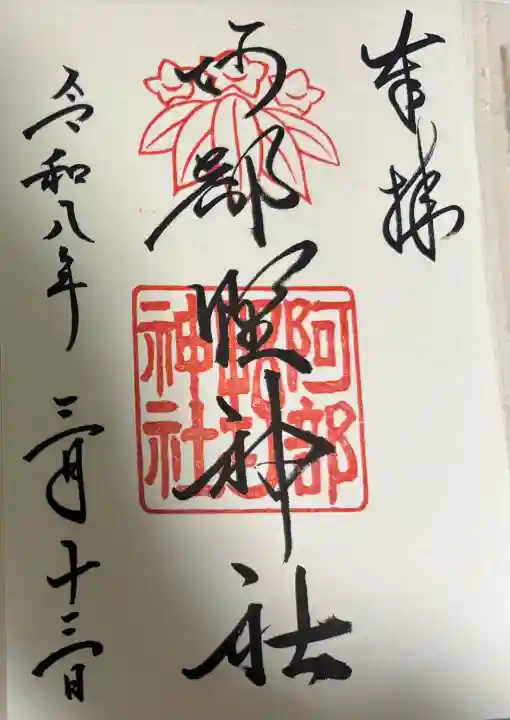 奉拝
阿部野神社
令和八年三月十三日
阿部
野
神社